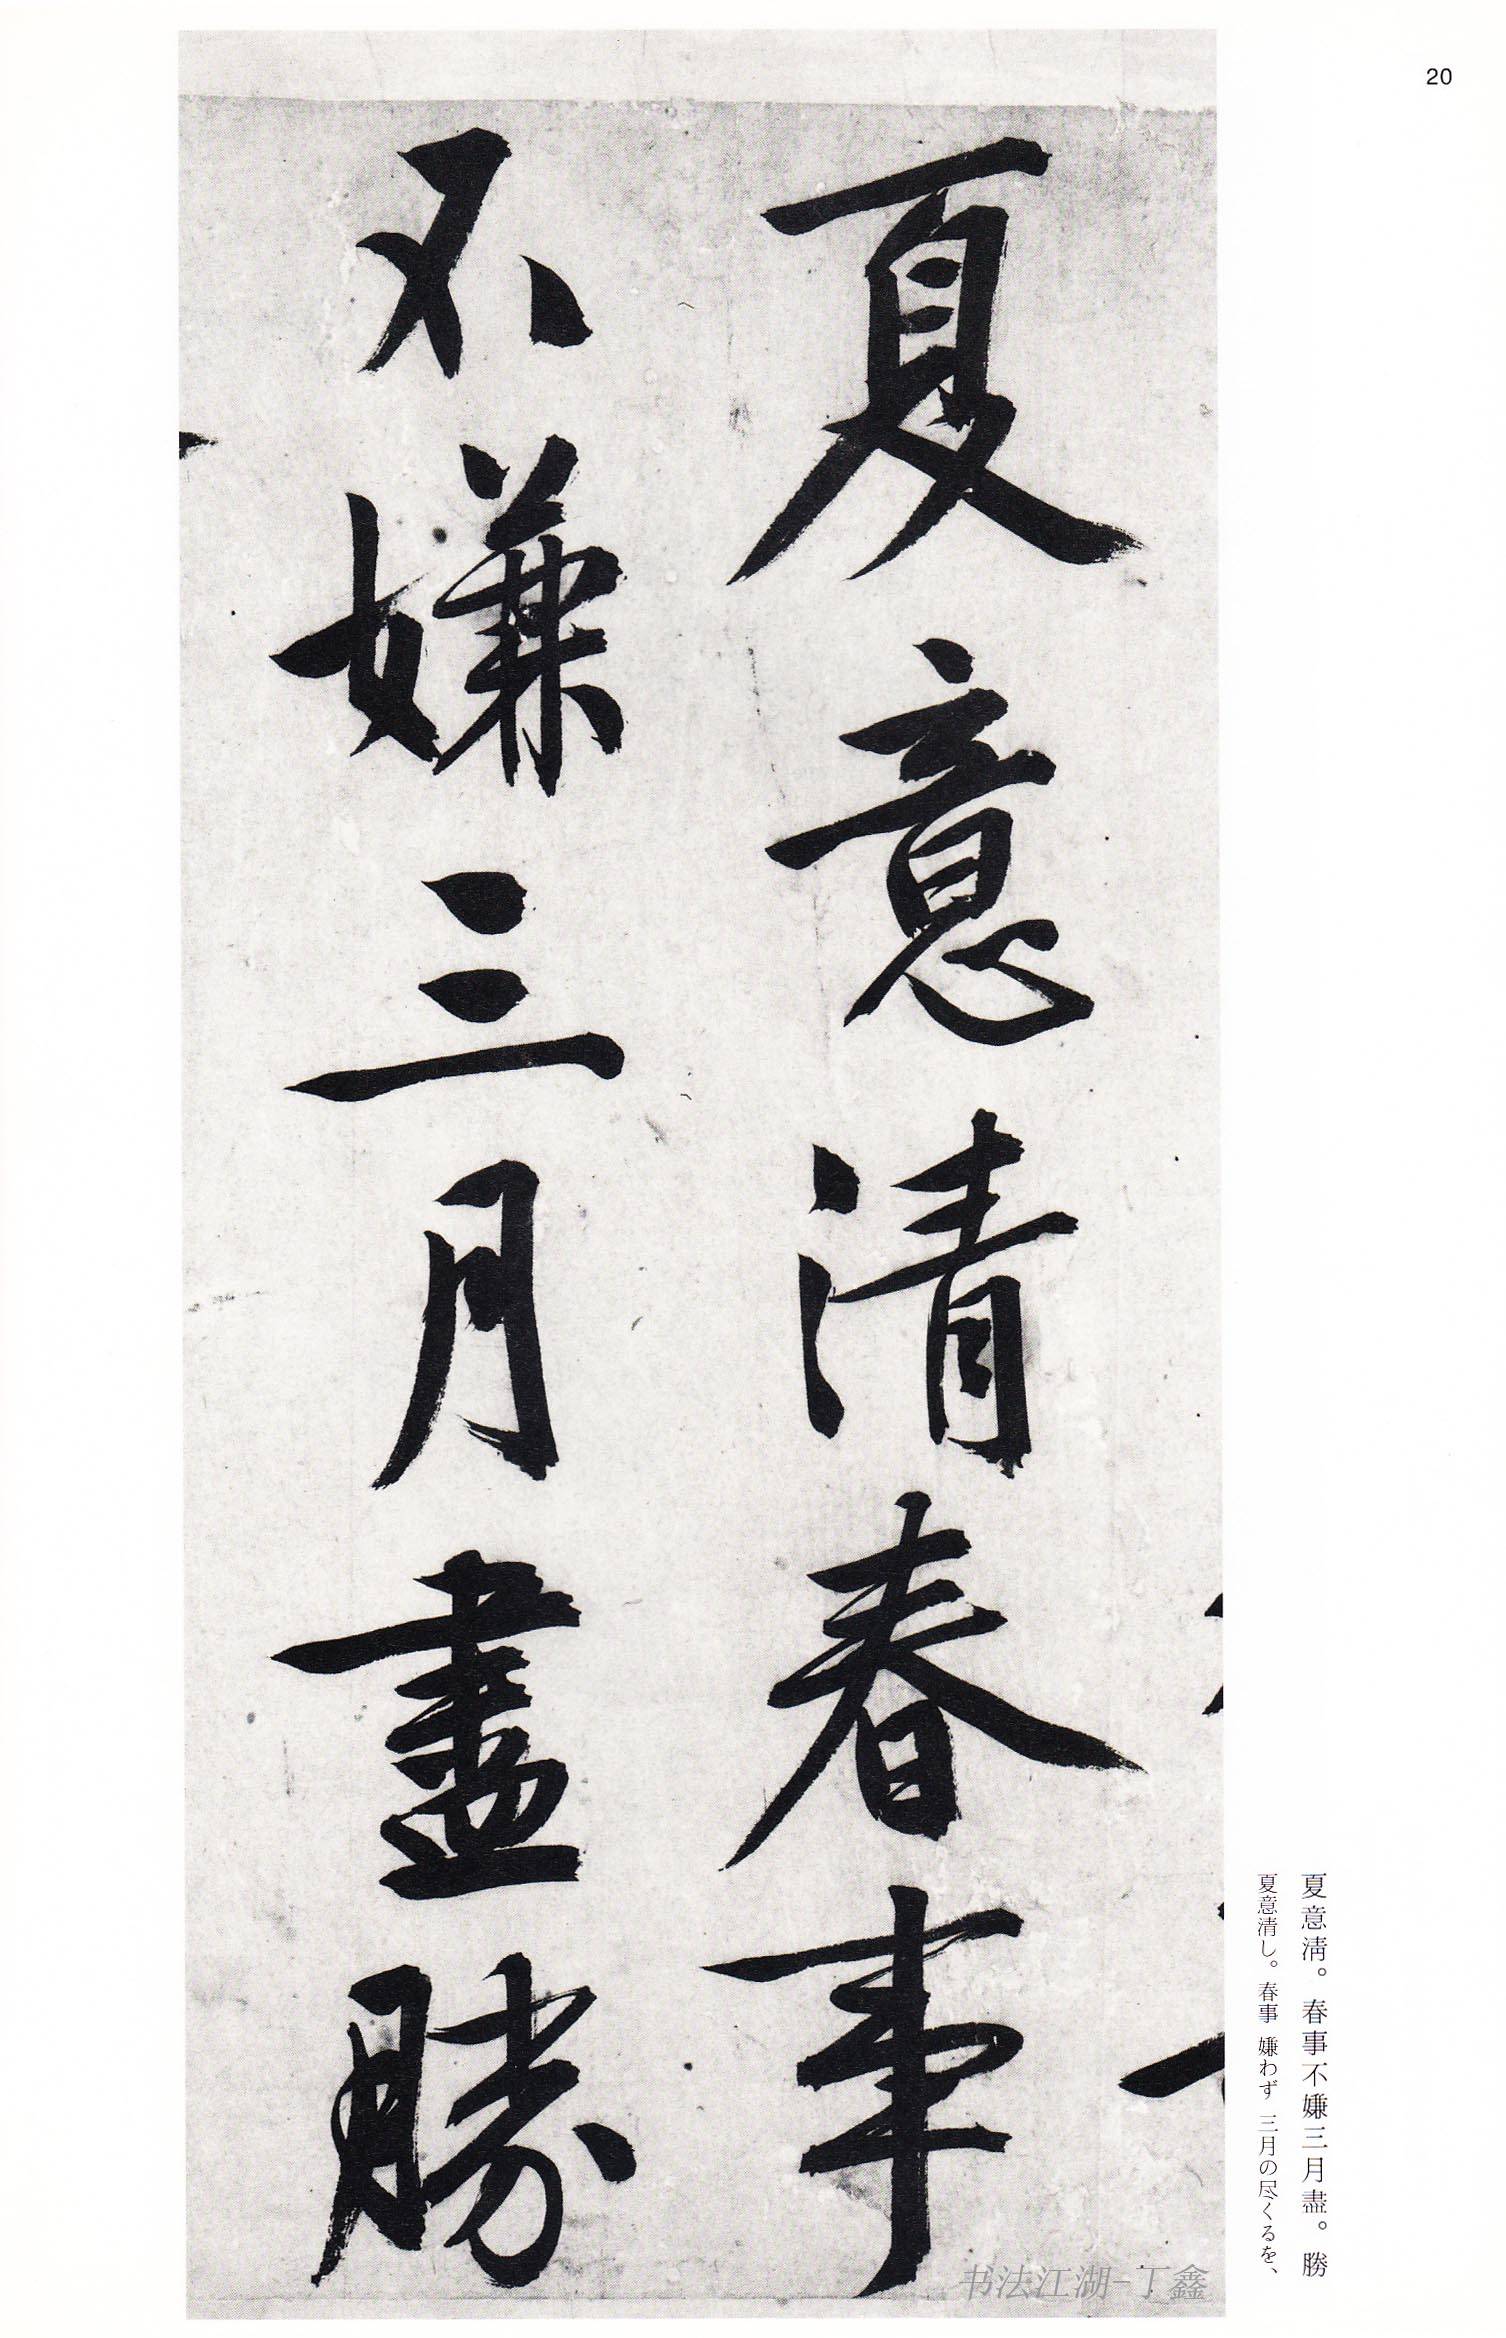 20
夏意清春事
不嫌三月盡勝
夏意淸。春事不嫌三月盡。勝
夏意清し。春事 嫌わず 三月の尽くるを、
书法江湖-丁鑫